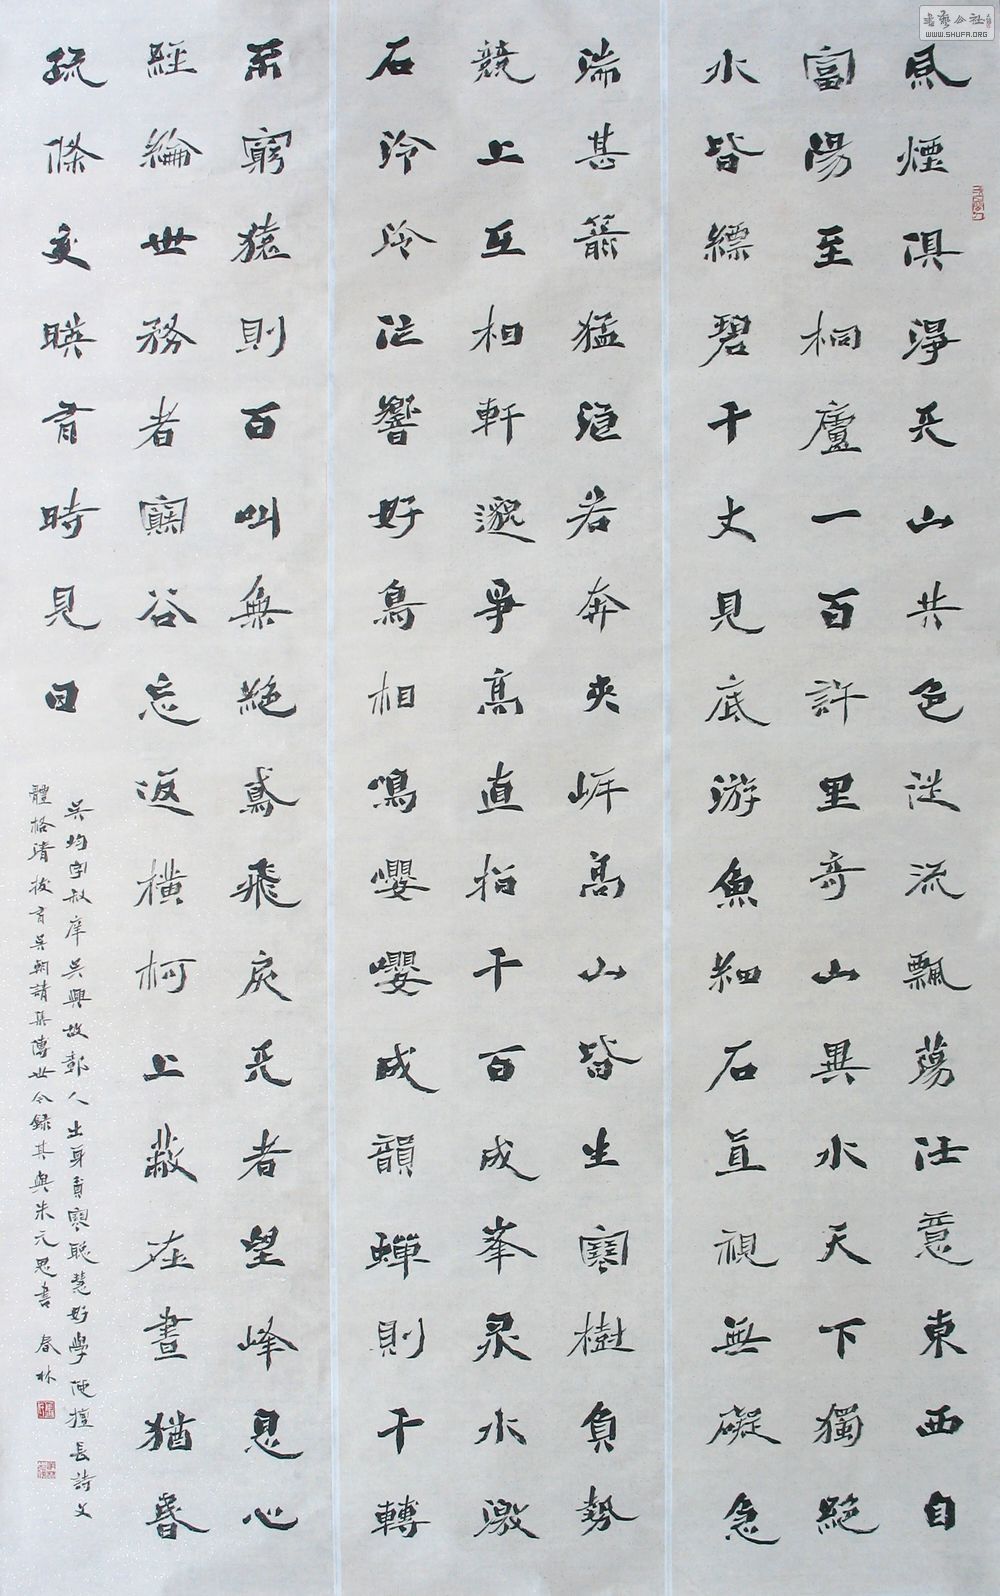 風煙俱淨天山共色從流飄蕩任意東西自
富陽至桐廬一百許里奇山異水天下獨絕
水皆縹碧千丈見底游魚細石直視無礙急
湍甚箭猛浪若奔夾岸高山皆生寒樹負勢
競上互相軒邈爭高直指千百成峯泉水激
石泠泠作響好鳥相鳴嚶嚶成韻蟬則千轉
不窮猿則百叫無絕鳶飛戾天者望峰息心
經綸世務者窺谷忘返橫柯上蔽在晝猶昏
疏條交映有時見日
吳均字叔庠吳興故鄣人出身貧寒聰慧好學便擅長詩文
體格清拔有吳朝請集傳世今錄其與朱元思書 春林
書藝公社
WWW.SHUFA.ORG